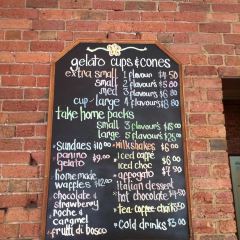 gelato cups & cones
extra small 1 flavour $4.50
small 2 flavour's $5.80
med 3 flavour's $6.80
cup - large 4 flavour's $8.80
take home packs
small 3 flavour's $15.00
large 5 flavour's $25.00
Sundaes $11.00
panino gelato $9.00
home made waffles $12.00
chocolate & strawberry
Roche & caramel
frutti di bosco
Milkshakes $6.00
iced caffe
iced choc
affogato
italian dessert
hot chocolate
tea - coffee - chai
Cold drinks